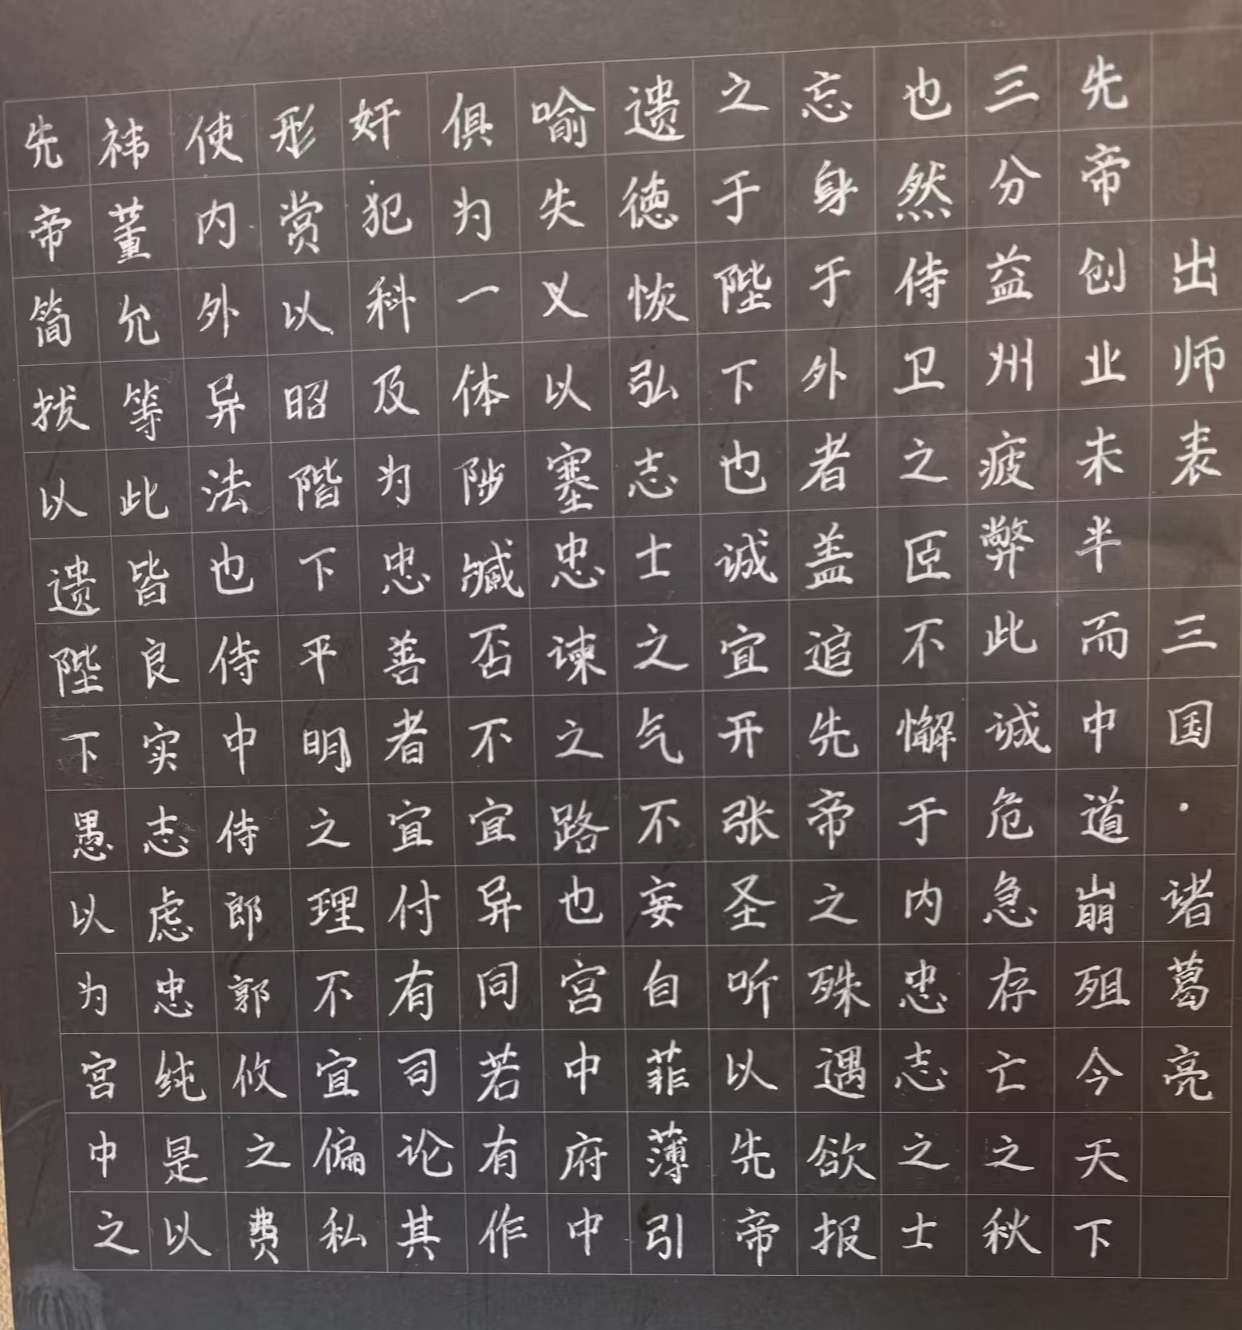 出师表 三国·诸葛亮
先帝创业未半而中道崩殂今天下
三分益州疲弊此诚危急存亡之秋
也然侍卫之臣不懈于内忠志之士
忘身于外者盖追先帝之殊遇欲报
之于陛下也诚宜开张圣听以先帝
遗德恢弘志士之气不妄自菲薄引
喻失义以塞忠谏之路也宫中府中
俱为一体陟臧否不宜异同若有作
奸犯科及为忠善者宜付有司论其
形赏以昭阶下平明之理不宜偏私
使内外异法也侍中侍郎郭攸之费
祎董允等此皆良实志虑忠纯是以
先帝简拔以遗陛下愚以为宫中之